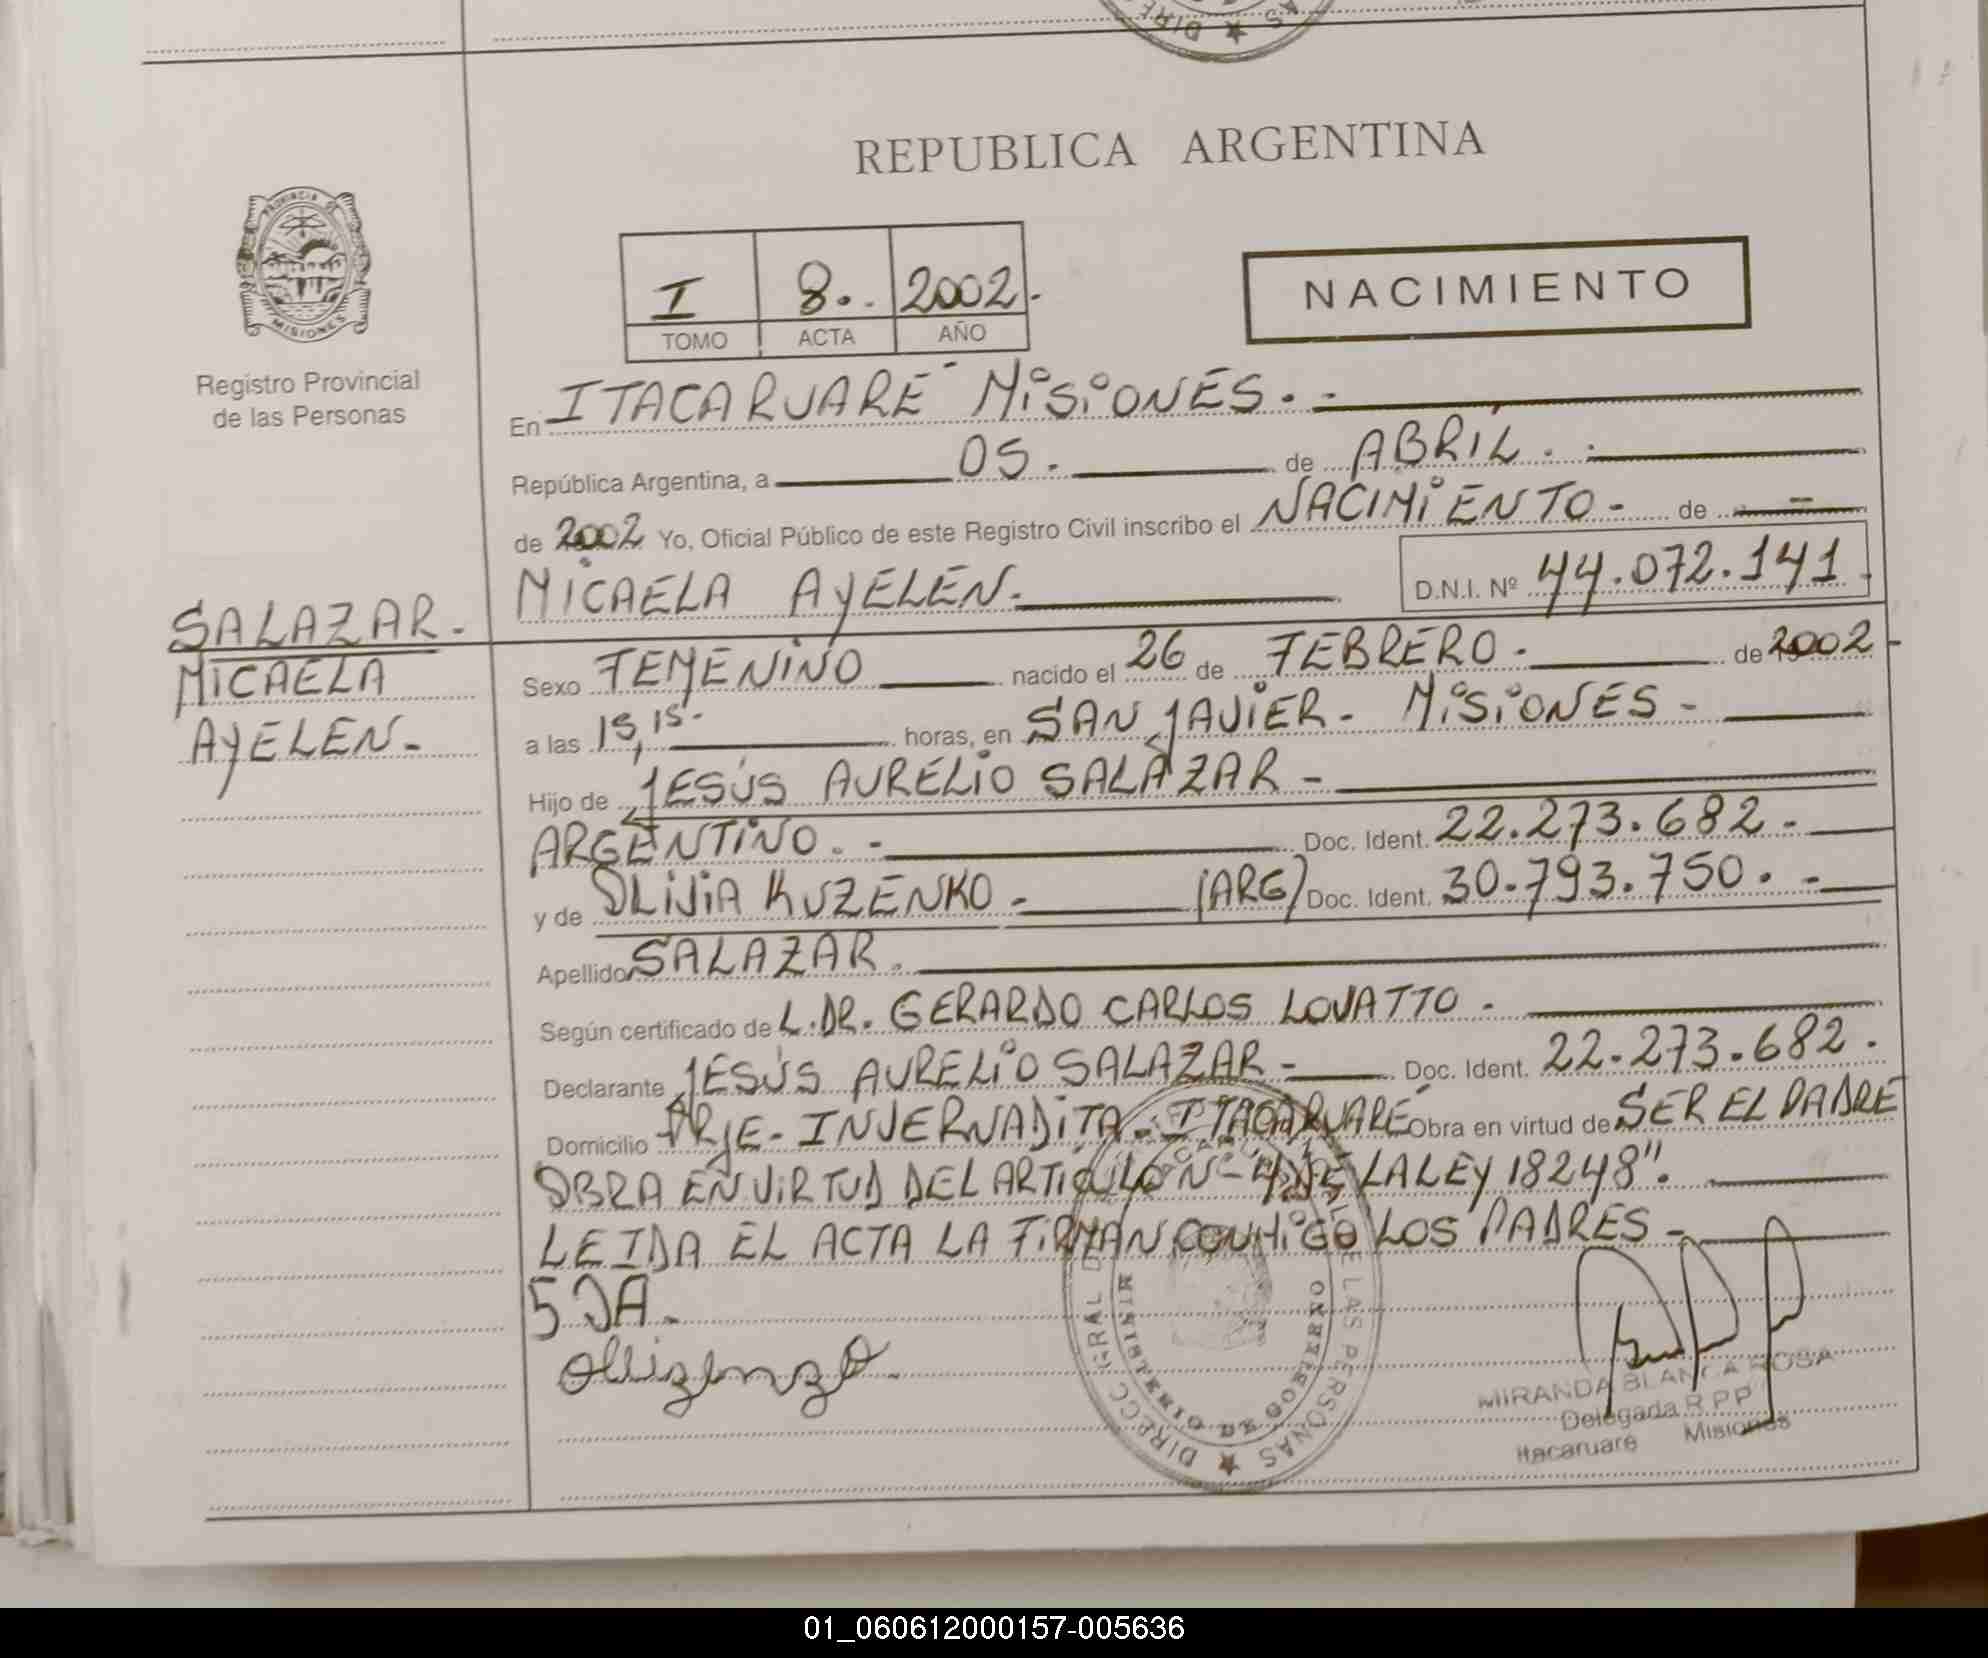 REPUBLICA ARGENTINA
PROVINCIA DE
MISIONES
Registro Provincial
de las Personas
I 8. 2002.
TOMO ACTA AÑO
NACIMIENTO
En ITACARUARE MISIONES.-
República Argentina, a 05. de ABRIL.
de 2002 Yo, Oficial Público de este Registro Civil inscribo el NACIMIENTO - de -
MICAELA AYELEN. D.N.I. Nº 44.072.141
SALAZAR.-
MICAELA
AYELEN.-
Sexo FEMENINO nacido el 26 de FEBRERO. de 2002-
a las 15,15- horas, en SAN JAVIER - MISIONES -
Hijo de JESÚS AURELIO SALAZAR -
ARGENTINO.- Doc. Ident. 22.273.682.-
y de OLIVIA KUZENKO - (ARG) Doc. Ident. 30.793.750.-
Apellido SALAZAR.
Según certificado de L.DR. GERARDO CARLOS LOVATTO -
Declarante JESÚS AURELIO SALAZAR - Doc. Ident. 22.273.682.
Domicilio INVERNADITA - ITACARUARE Obra en virtud de SER EL PADRE
OBRA EN VIRTUD DEL ARTICULO Nº 4 DE LA LEY 18248".
LEIDA EL ACTA LA FIRMAN CONMIGO LOS PADRES -
MIRANDA BLANCA ROSA
Delegada R P P
Itacaruare Misiones
01_060612000157-005636